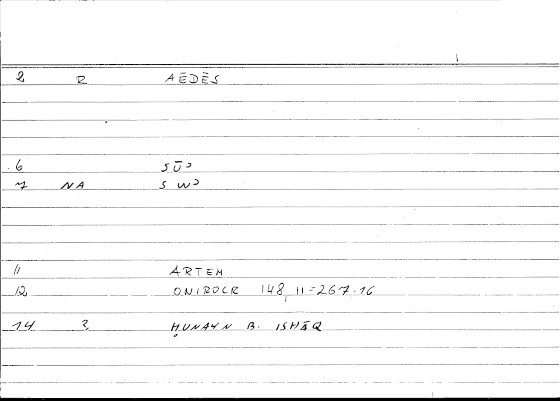 2 R AĒDĒS
6 SŪʾ
7 NA SWʾ
11 ARTEM
12 ONIROCR 148, 11=267.16
14 2 ḤUNAYN B. ISHĀQ